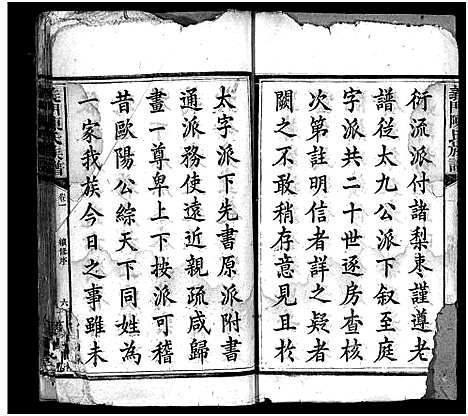 義門陳氏族譜
衍流派付諸梨棗謹遵老
譜從太九公派下叙至庭
字派共二十世逐房查核
次第註明信者詳之疑者
闕之不敢稍存意見且於
太字派下先書原派附書
通派務使遠近親疏咸歸
畫一尊卑上下按派可稽
昔歐陽公綜天下同姓為
一家我族今日之事雖未
義門陳氏族譜
卷一
續修序
六